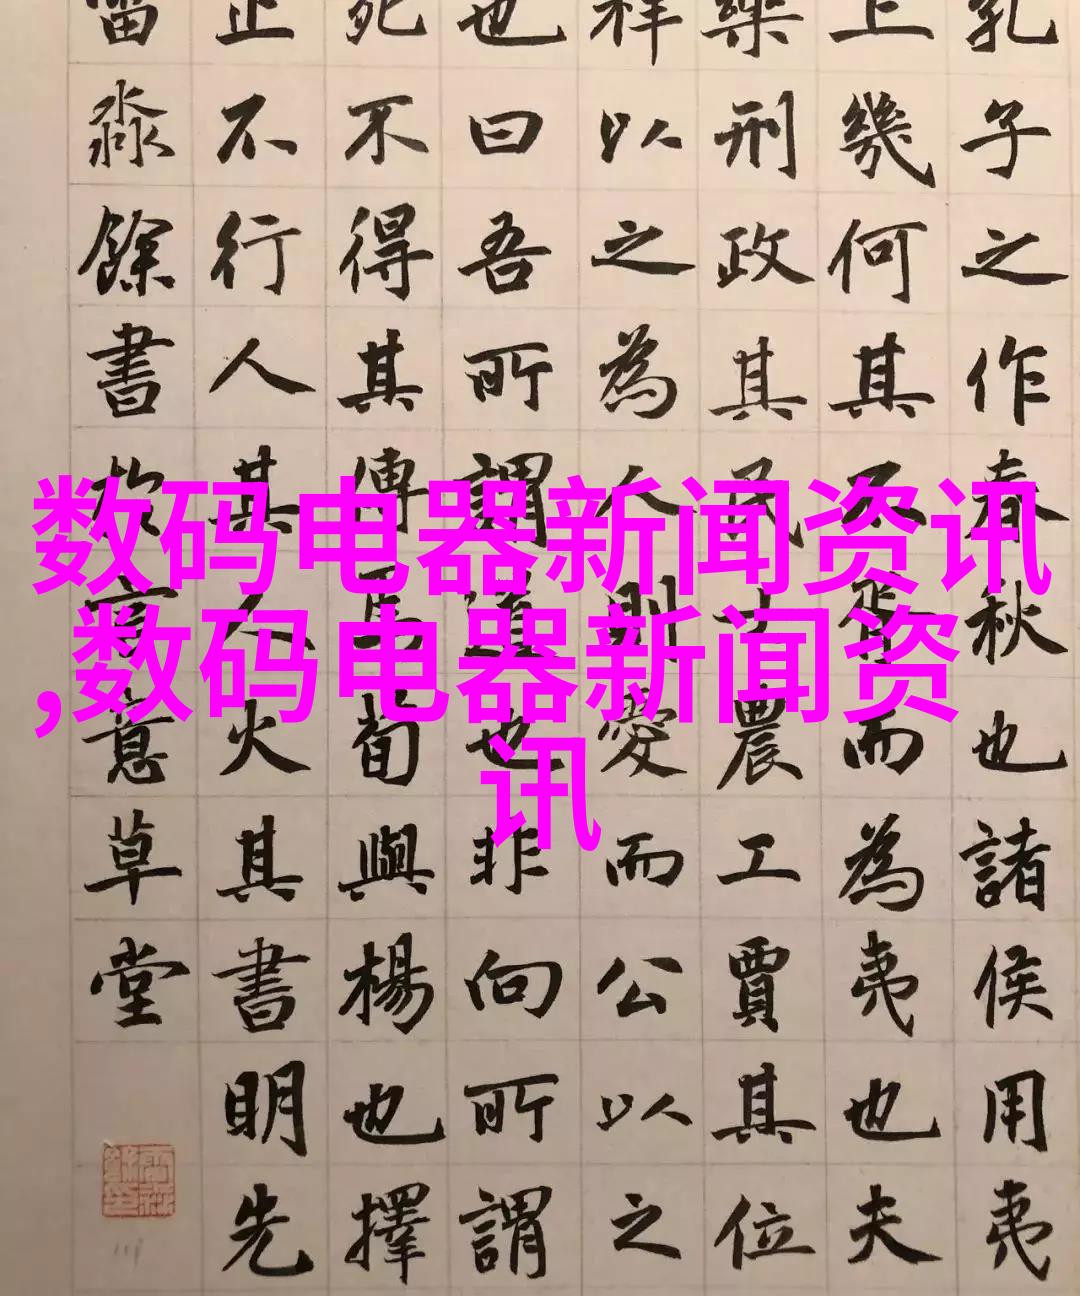 数码电器新闻资讯
,数码电器新闻资
讯
孔子之作春秋也諸侯用夷
上幾何其不胥而為夷也夫
樂刑政其民士農工賈其位
祥以之為人則愛而公以之
也曰吾所謂道也非向所謂
死不得其傳焉荀與楊也擇
止不行人其人火其書明先
淼餘書於意草堂